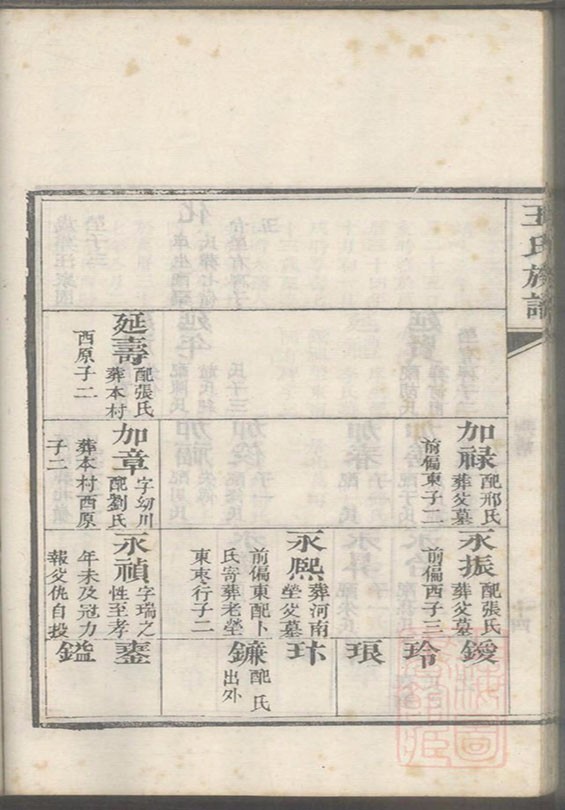 王氏族譜
加祿
配邢氏
葬父墓
前偏東子二
永振
配張氏
葬父墓
前偏西子三
鍐
玲
琅
永熙
葬河南
塋父墓
前偏東配卜
氏寄葬老塋
東枣行子二
玤
鐮
配氏
出外
延壽
配張氏
葬本村
西原子二
加章
字幼川
配劉氏
葬本村西原
子二
永禎
字瑞之
性至孝
年未及冠力
報父仇自投
鎏
鎰